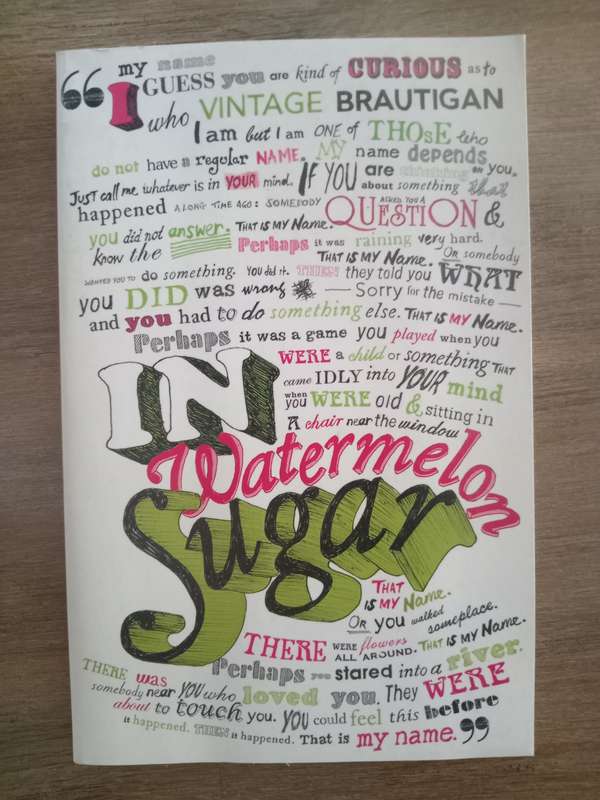 “ my name
I GUESS you are kind of CURIOUS as to
who VINTAGE BRAUTIGAN
I am but I am ONE of THOSE who
do not have a regular NAME. MY name depends
on you.
Just call me whatever is in YOUR mind. IF YOU are thinking
about something that
happened A LONG TIME AGO: SOMEBODY ASKED YOU A QUESTION &
you did not answer. THAT IS MY Name.
know the Perhaps it was raining very hard.
THAT IS MY Name. OR somebody
WANTED YOU TO do something. YOU did it. THEN they told you WHAT
you DID was wrong — Sorry for the mistake —
and you had to do something else. THAT IS MY Name.
Perhaps it was a game you played when you
WERE a child or something THAT
came IDLY into YOUR mind
when you WERE old & sitting in
A chair near the window
IN
Watermelon
Sugar
THAT
IS MY Name.
OR you walked someplace.
THERE WERE flowers ALL AROUND. THAT IS MY Name.
Perhaps you stared into a river.
THERE was
somebody near YOU who loved you. They WERE
about to touch you. YOU could feel this before
it happened. THEN it happened. That is my name.”